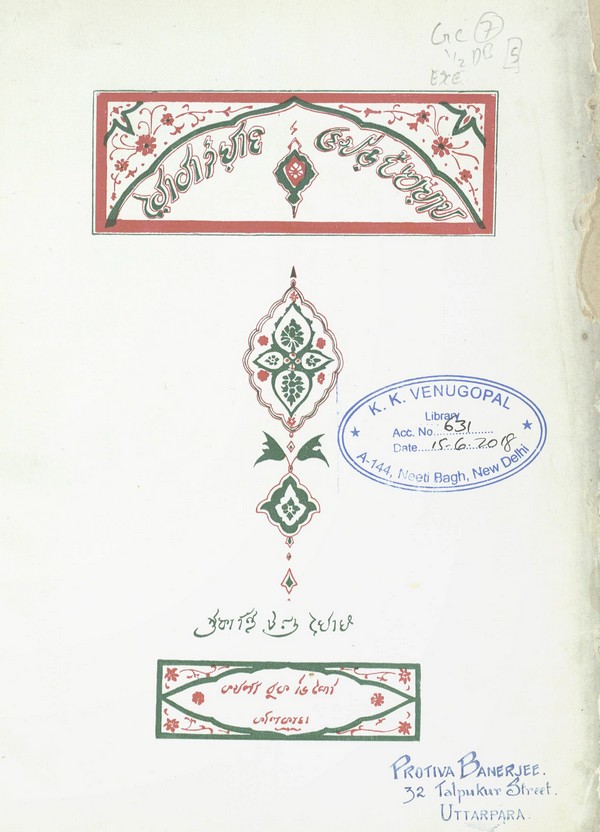 Gre 7
1/2 DC 5
EXE
K. K. VENUGOPAL
Library
Acc. No. 631
Date 15-6-2018
A-144, Neeti Bagh, New Delhi
শ্রীকান্তি চন্দ্র ঘোষ
কমলা বুক ডিপো
কলিকাতা
PROTIVA BANERJEE.
32 Talpukur Street.
UTTARPARA.